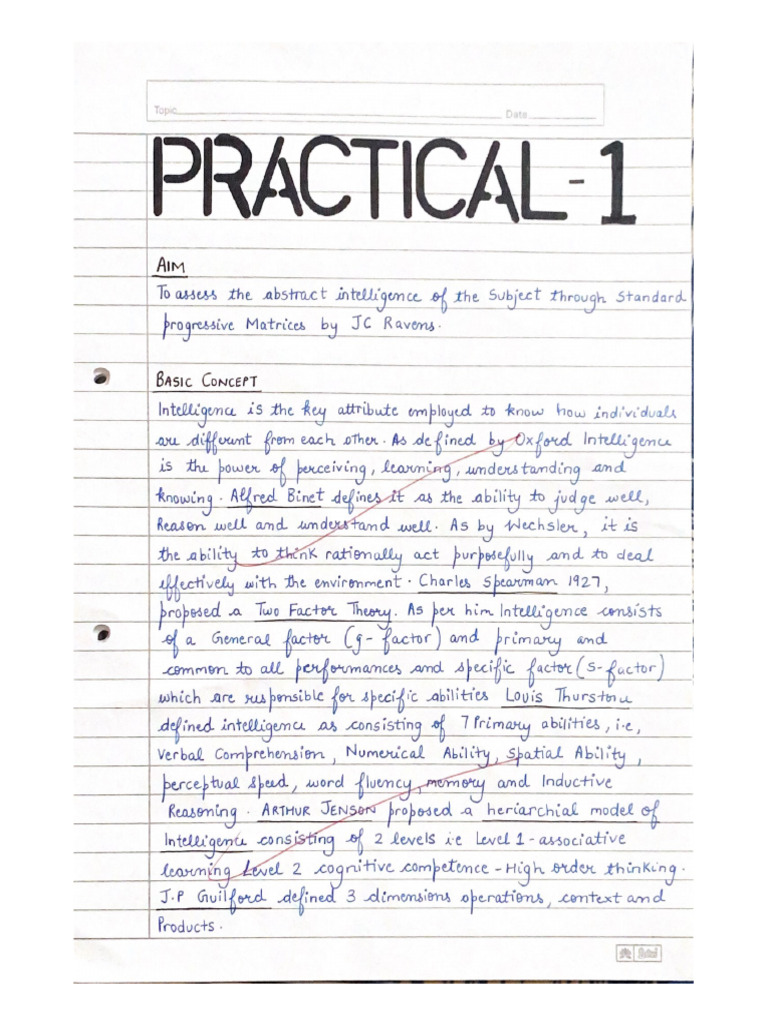 Topic
Date
PRACTICAL-1
AIM
To assess the abstract intelligence of the Subject through Standard
progressive Matrices by JC Ravens.
BASIC CONCEPT
Intelligence is the key attribute employed to know how individuals
are different from each other. As defined by Oxford Intelligence
is the power of perceiving, learning, understanding and
knowing. Alfred Binet defines it as the ability to judge well,
Reason well and understand well. As by Wechsler, it is
the ability to think rationally act purposefully and to deal
effectively with the environment. Charles Spearman 1927,
proposed a Two Factor Theory. As per him Intelligence consists
of a General factor (g-factor) and primary and
common to all performances and specific factor (s-factor)
which are responsible for specific abilities Louis Thurstone
defined intelligence as consisting of 7 Primary abilities, i.e,
Verbal Comprehension, Numerical Ability, Spatial Ability,
perceptual speed, word fluency, memory and Inductive
Reasoning. ARTHUR JENSON proposed a heriarchial model of
Intelligence consisting of 2 levels i.e Level 1 - associative
learning Level 2 cognitive competence - High order thinking.
J.P Guilford defined 3 dimensions operations, context and
Products.